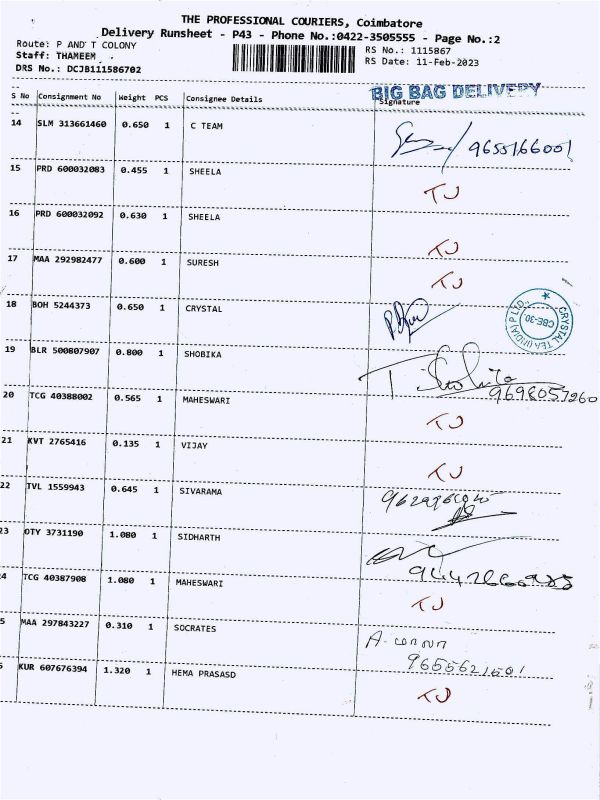 THE PROFESSIONAL COURIERS, Coimbatore
Delivery Runsheet - P43 - Phone No.:0422-3505555 - Page No.:2
Route: P AND T COLONY
RS No.: 1115867
Staff: THAMEEM .
RS Date: 11-Feb-2023
DRS No.: DCJB111586702
BIG BAG DELIVERY
S No Consignment No Weight PCS Consignee Details Signature
14 SLM 313661460 0.650 1 C TEAM 9655166001
15 PRD 600032083 0.455 1 SHEELA TJ
16 PRD 600032092 0.630 1 SHEELA TJ
17 MAA 292982477 0.600 1 SURESH TJ
18 BOH 5244373 0.650 1 CRYSTAL
CRYSTAL TEA (INDIA) P LTD.,
CBE-30.
19 BLR 500807907 0.800 1 SHOBIKA
9698057260
20 TCG 40388002 0.565 1 MAHESWARI TJ
21 KVT 2765416 0.135 1 VIJAY TJ
22 TVL 1559943 0.645 1 SIVARAMA
23 OTY 3731190 1.080 1 SIDHARTH
4 TCG 40387908 1.080 1 MAHESWARI TJ
5 MAA 297843227 0.310 1 SOCRATES
KUR 607676394 1.320 1 HEMA PRASASD TJ